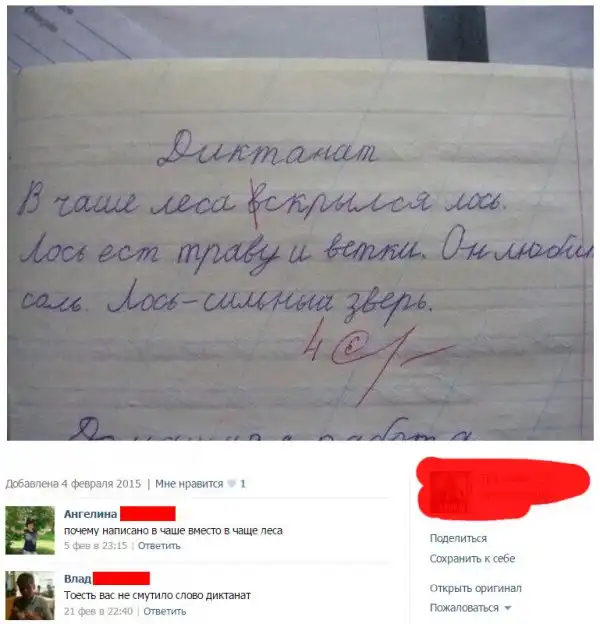 Диктанат
В чаше леса вскрылся лось.
Лось ест траву и ветки. Он люби
соль. Лось-сильныа зверь.
4
Домашняя работа
Добавлена 4 февраля 2015 | Мне нравится 1
Ангелина
почему написано в чаше вместо в чаще леса
5 фев в 23:15 | Ответить
Влад
Тоесть вас не смутило слово диктанат
21 фев в 22:40 | Ответить
Поделиться
Сохранить к себе
Открыть оригинал
Пожаловаться